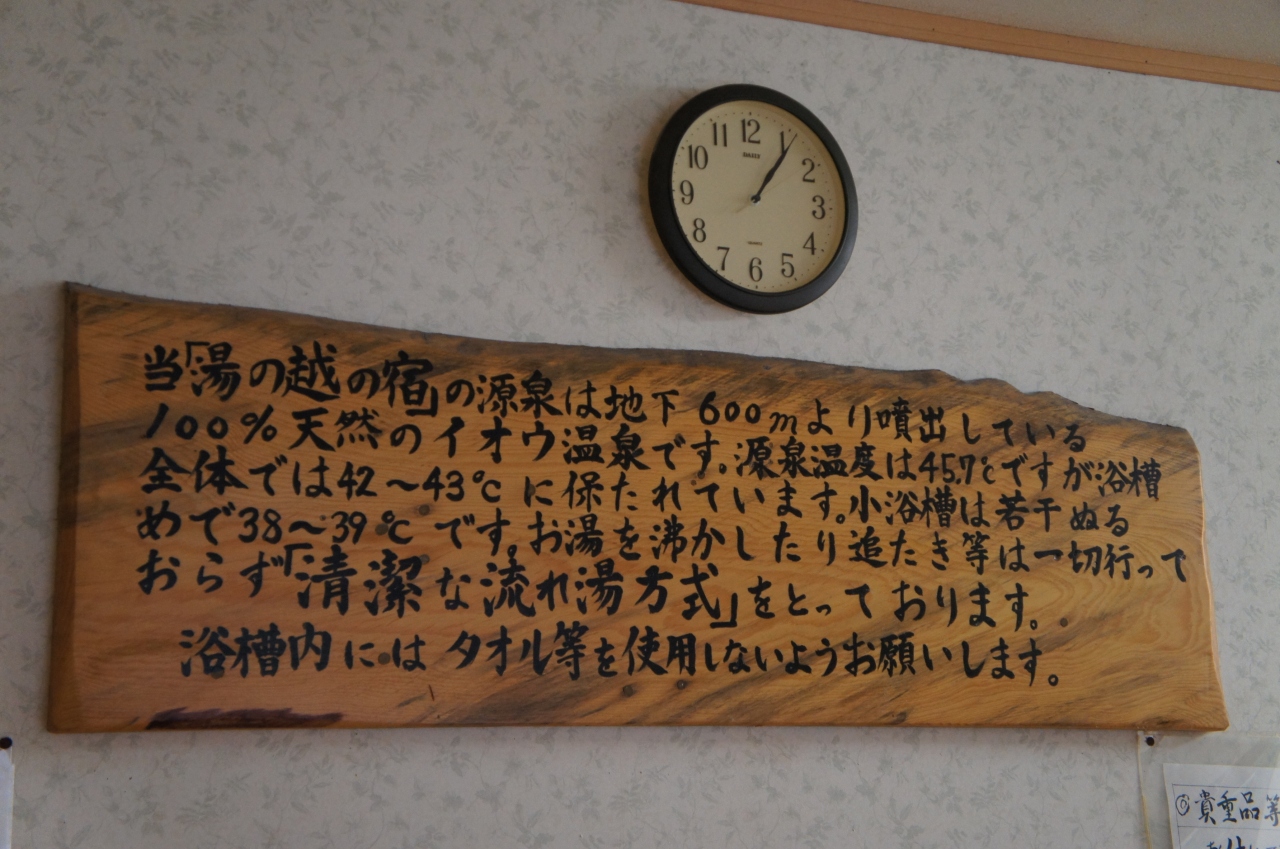 11 12 1
10 2
9 3
8 4
7 6 5
当「湯の越の宿」の源泉は地下600mより噴出している
100%天然のイオウ温泉です。源泉温度は45.7℃ですが浴槽
全体では42～43℃に保たれています。小浴槽は若干ぬる
めで38～39℃です。お湯を沸かしたり追たき等は一切行って
おらず「清潔な流れ湯方式」をとっております。
浴槽内にはタオル等を使用しないようお願いします。
貴重品等